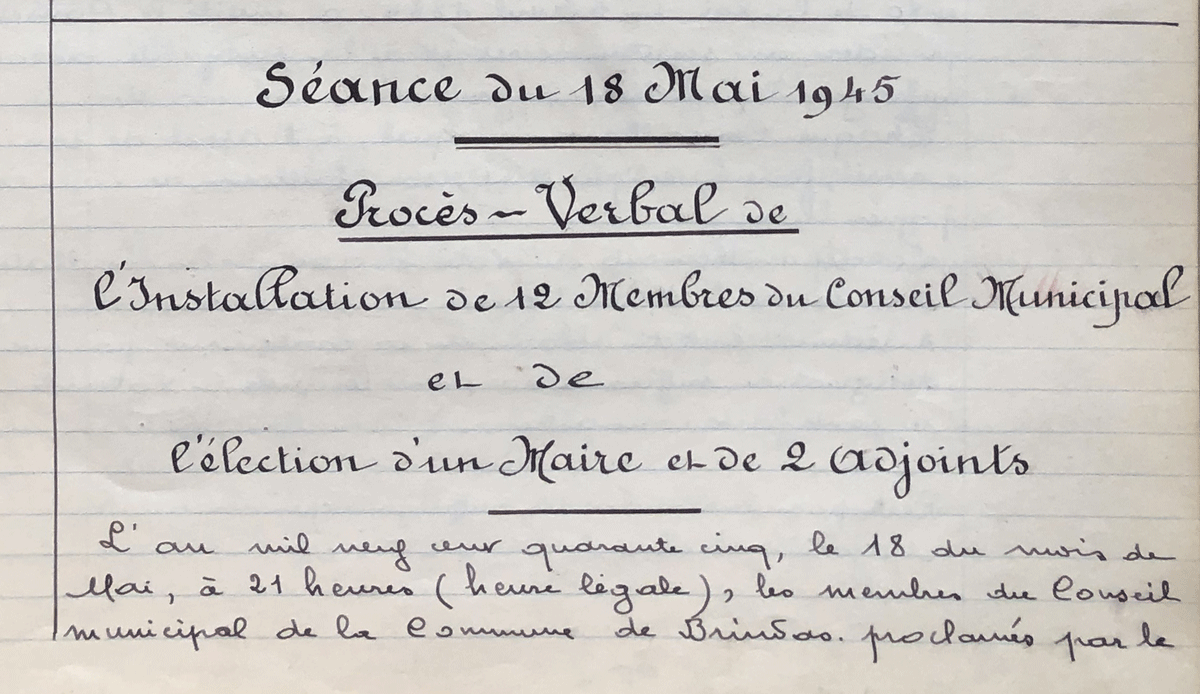 Séance du 18 Mai 1945
Procès-Verbal de
l'Installation de 12 Membres du Conseil Municipal
et de
l'élection d'un Maire et de 2 adjoints
L'an mil neuf cent quarante cinq, le 18 du mois de
Mai, à 21 heures (heure légale), les membres du Conseil
municipal de la Commune de Brindas. proclamés par le